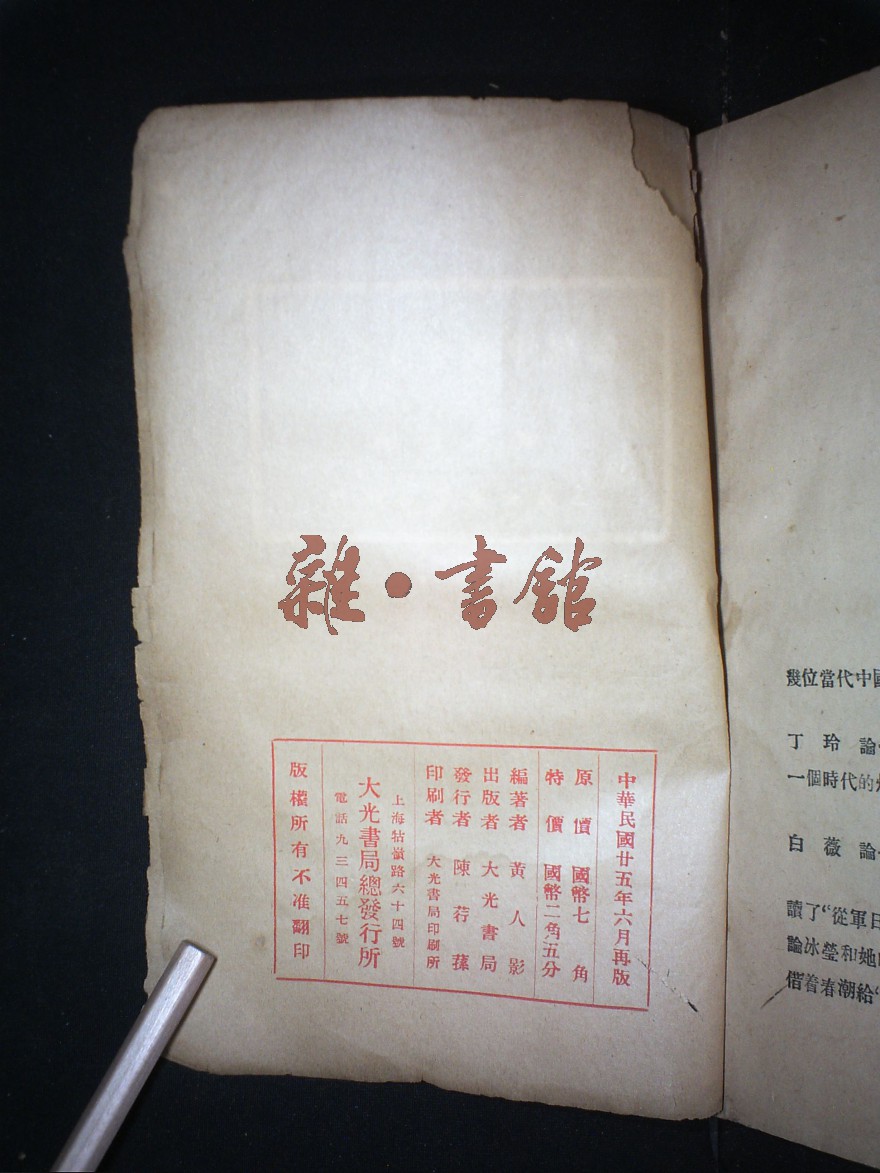 雜·書館
中華民國廿五年六月再版
原價 國幣七角
特價 國幣二角五分
編著者 黃人影
出版者 大光書局
發行者 陳荇蓀
印刷者 大光書局印刷所
上海牯嶺路六十四號
大光書局總發行所
電話九三四五七號
版權所有不准翻印
幾位當代中國
丁玲論
一個時代的
白薇論
讀了“從軍日
論冰瑩和她
偕着春潮給“